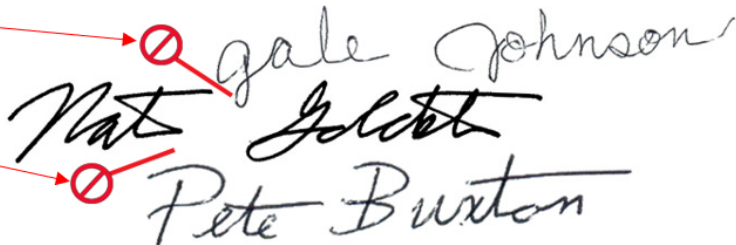 gale Johnson
Nat Goldst
Pete Buxton